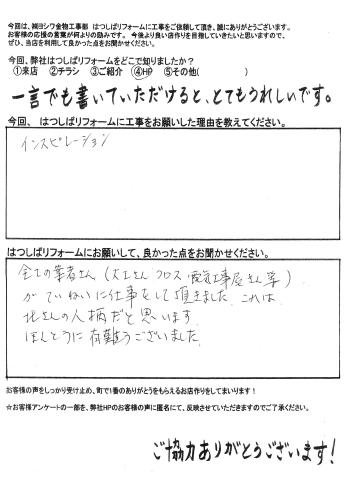 今回は、㈱ヨシワ金物工事部 はつしばリフォームに工事をご依頼して頂き、誠にありがとうございます。
お客様の応援の言葉が何よりの励みです。 今後より良い店作りを目指していきたいと思いますので、
ぜひ、当店を利用して良かった点をお聞かせください。
今回、弊社はつしばリフォームをどこで知りましたか？
①来店 ②チラシ ③ご紹介 ④HP ⑤その他( )
一言でも書いていただけると、とてもうれしいです。
今回、 はつしばリフォームに工事をお願いした理由を教えてください。
インスピレーション
はつしばリフォームにお願いして、良かった点をお聞かせください。
全ての業者さん(大工さん クロス・電気工事屋さん等)
がていねいに仕事をして頂きました これは
北さんの人柄だと思います
ほんとうに有難うございました
お客様の声をしっかり受け止め、町で1番のありがとうをもらえるお店作りをしてまいります！
☆お客様アンケートの一部を、弊社HPのお客様の声に匿名にて、反映させていただきますのでご了承ください。
ご協力ありがとうございます！